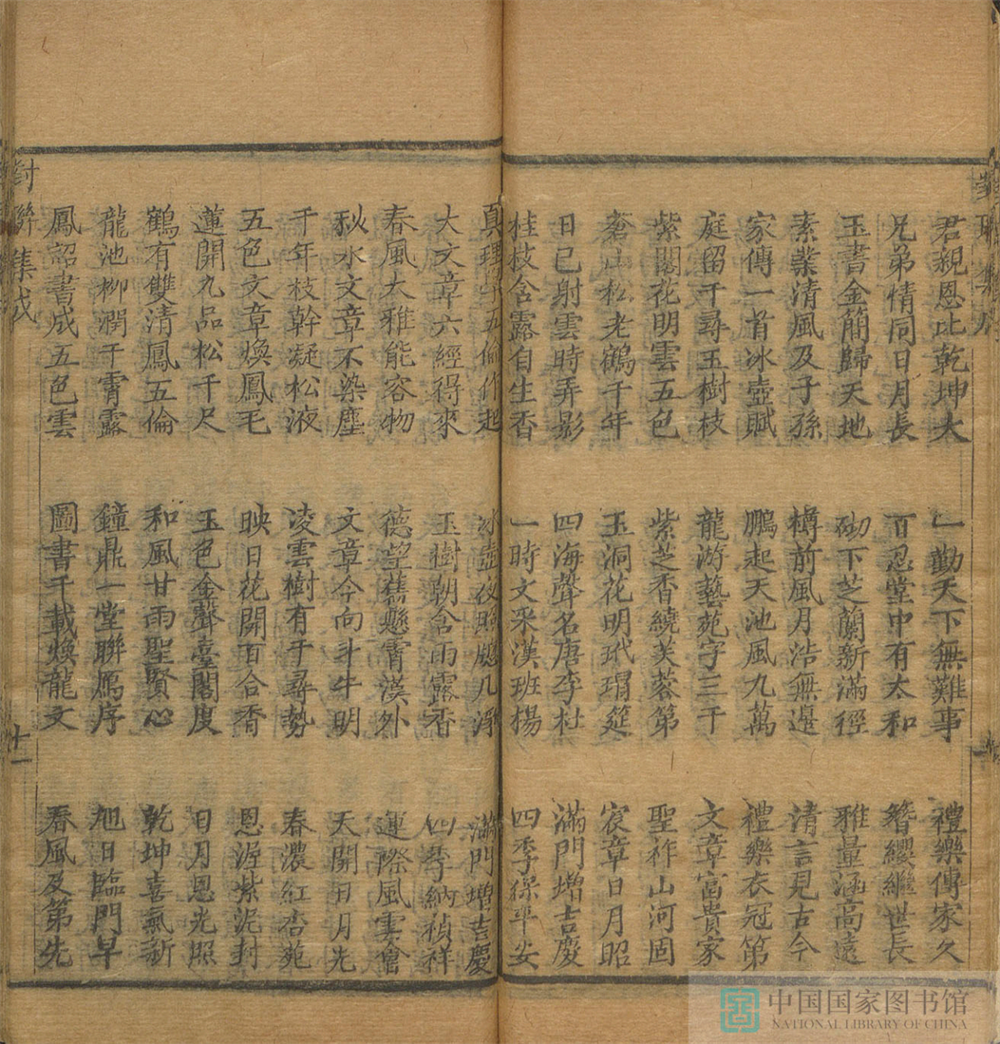 君親恩比乾坤大
兄弟情同日月長
玉書金簡歸天地
素業清風及子孫
家傳一首冰壺賦
庭留千尋玉樹枝
紫閣花明雲五色
蒼山松老鶴千年
日已射雲時弄影
桂枝含露自生香
一勤天下無難事
百忍堂中有太和
砌下芝蘭新滿徑
樽前風月浩無邊
鵬起天池風九萬
龍游藝苑字三千
紫芝香繞芙蓉第
玉洞花明玳瑁筵
四海聲名唐李杜
一時文采漢班楊
禮樂傳家久
簪纓繼世長
雅量涵高遠
清言見古今
禮樂衣冠第
文章富貴家
聖祚山河固
宸章日月昭
滿門增吉慶
四季保平安
真理學五倫作起
大文章六經得來
春風大雅能容物
秋水文章不染塵
千年枝幹凝松液
五色文章煥鳳毛
蓮開九品松千尺
鶴有雙清鳳五倫
龍池柳潤千霄露
鳳詔書成五色雲
冰壺夜照牕几淨
玉樹朝含雨露香
德望舊懸霄漢外
文章今向斗牛明
凌雲樹有千尋勢
映日花開百合香
玉色金聲臺閣度
和風甘雨聖賢心
鐘鼎一堂聯鴈序
圖書千載煥龍文
滿門增吉慶
四季納禎祥
運際風雲會
天開日月光
春濃紅杏苑
恩渥紫泥封
日月恩光照
乾坤喜氣新
旭日臨門早
春風及第先
對聯集成
十一
中国国家图书馆
NATIONAL LIBRARY OF CHINA